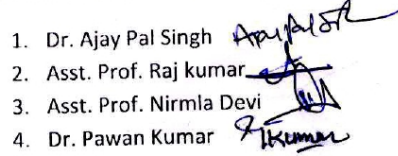 1. Dr. Ajay Pal Singh
2. Asst. Prof. Raj kumar
3. Asst. Prof. Nirmla Devi
4. Dr. Pawan Kumar PKumar